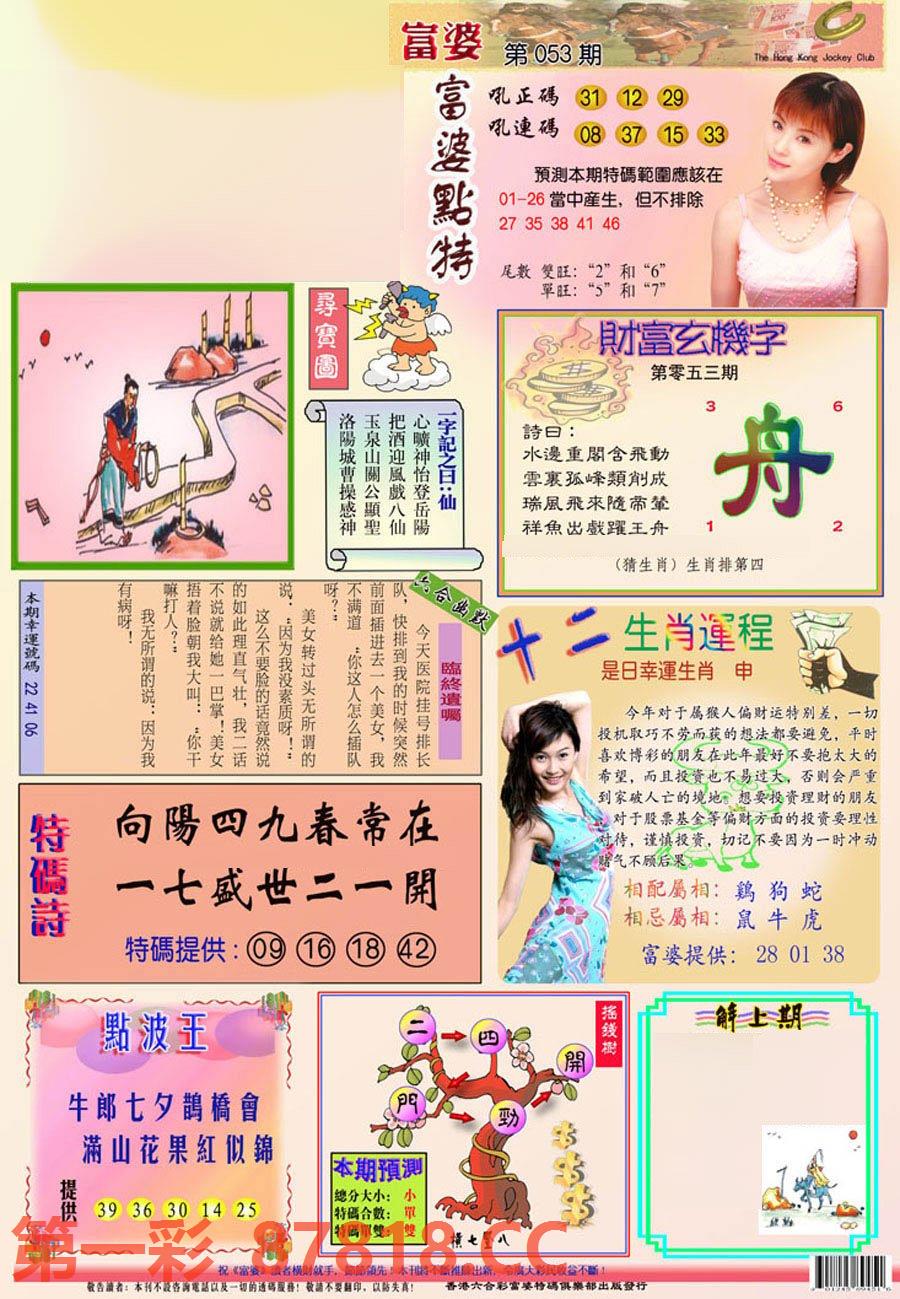 富婆
第 053 期
The Hong Kong Jockey Club
富婆點特
吼正碼 31 12 29
吼連碼 08 37 15 33
預測本期特碼範圍應該在
01-26 當中産生，但不排除
27 35 38 41 46
尾數 雙旺：“2”和“6”
單旺：“5”和“7”
尋寶圖
一字記之曰：仙
心曠神怡登岳陽
把酒迎風戲八仙
玉泉山關公顯聖
洛陽城曹操感神
財富玄機字
第零五三期
詩曰：
水邊重閣含飛動
雲裏孤峰類削成
瑞風飛來隨帝輦
祥魚出戲躍王舟
3 6
舟
1 2
（猜生肖）生肖排第四
六合幽默
臨終遺囑
今天医院挂号排长
队，快排到我的时候突然
前面插进去一个美女，我
不满道 “你这人怎么插队
呀？”
美女转过头无所谓的
说：“因为我没素质呀！”
这么不要脸的话竟然说
的如此理直气壮，我二话
不说就给她一巴掌！美女
捂着脸朝我大叫：“你干
嘛打人？”
我无所谓的说：因为我
有病呀！
本期幸運號碼 22 41 06
十二生肖運程
是日幸運生肖 申
今年对于属猴人偏财运特别差，一切
投机取巧不劳而获的想法都要避免，平时
喜欢博彩的朋友在此年最好不要抱太大的
希望，而且投资也不易过大，否则会严重
到家破人亡的境地。想要投资理财的朋友
，对于股票基金等偏财方面的投资要理性
对待，谨慎投资，切记不要因为一时冲动
赌气不顾后果。
相配屬相：鷄 狗 蛇
相忌屬相：鼠 牛 虎
富婆提供：28 01 38
特碼詩
向陽四九春常在
一七盛世二一開
特碼提供：09 16 18 42
點波王
牛郎七夕鵲橋會
滿山花果紅似錦
提供 39 36 30 14 25
搖錢樹
二 四
開
門
勁
本期預測
總分大小：小
特碼合數：單
特碼單雙：雙
橫七竪八
解上期
第一彩 87818.CC
祝《富婆》讀者橫財就手，節節領先！本刊將不斷推陳出新，令廣大彩民收益不斷！
敬告讀者：本刊不設咨詢電話以及一切的透碼服務！敬請不要翻印，以防失真！
香港六合彩富婆特碼俱樂部出版發行